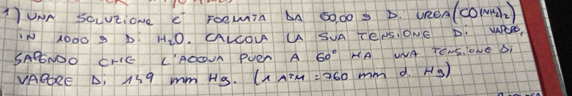 1) UNA SOLUZIONE È FORMATA DA 60,00 g DI UREA (CO(NH2)2)
IN 1000 g DI H2O. CALCOLA LA SUA TENSIONE DI VAPORE,
SAPENDO CHE L'ACQUA PURA A 60° HA UNA TENSIONE DI
VAPORE DI 149 mm Hg. (1 ATM = 760 mm d Hg)